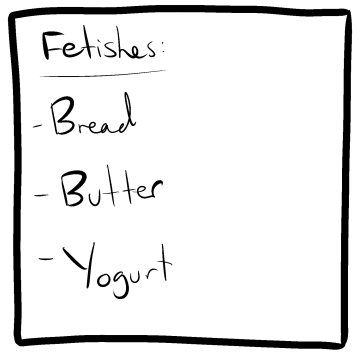 Fetishes:
- Bread
- Butter
- Yogurt